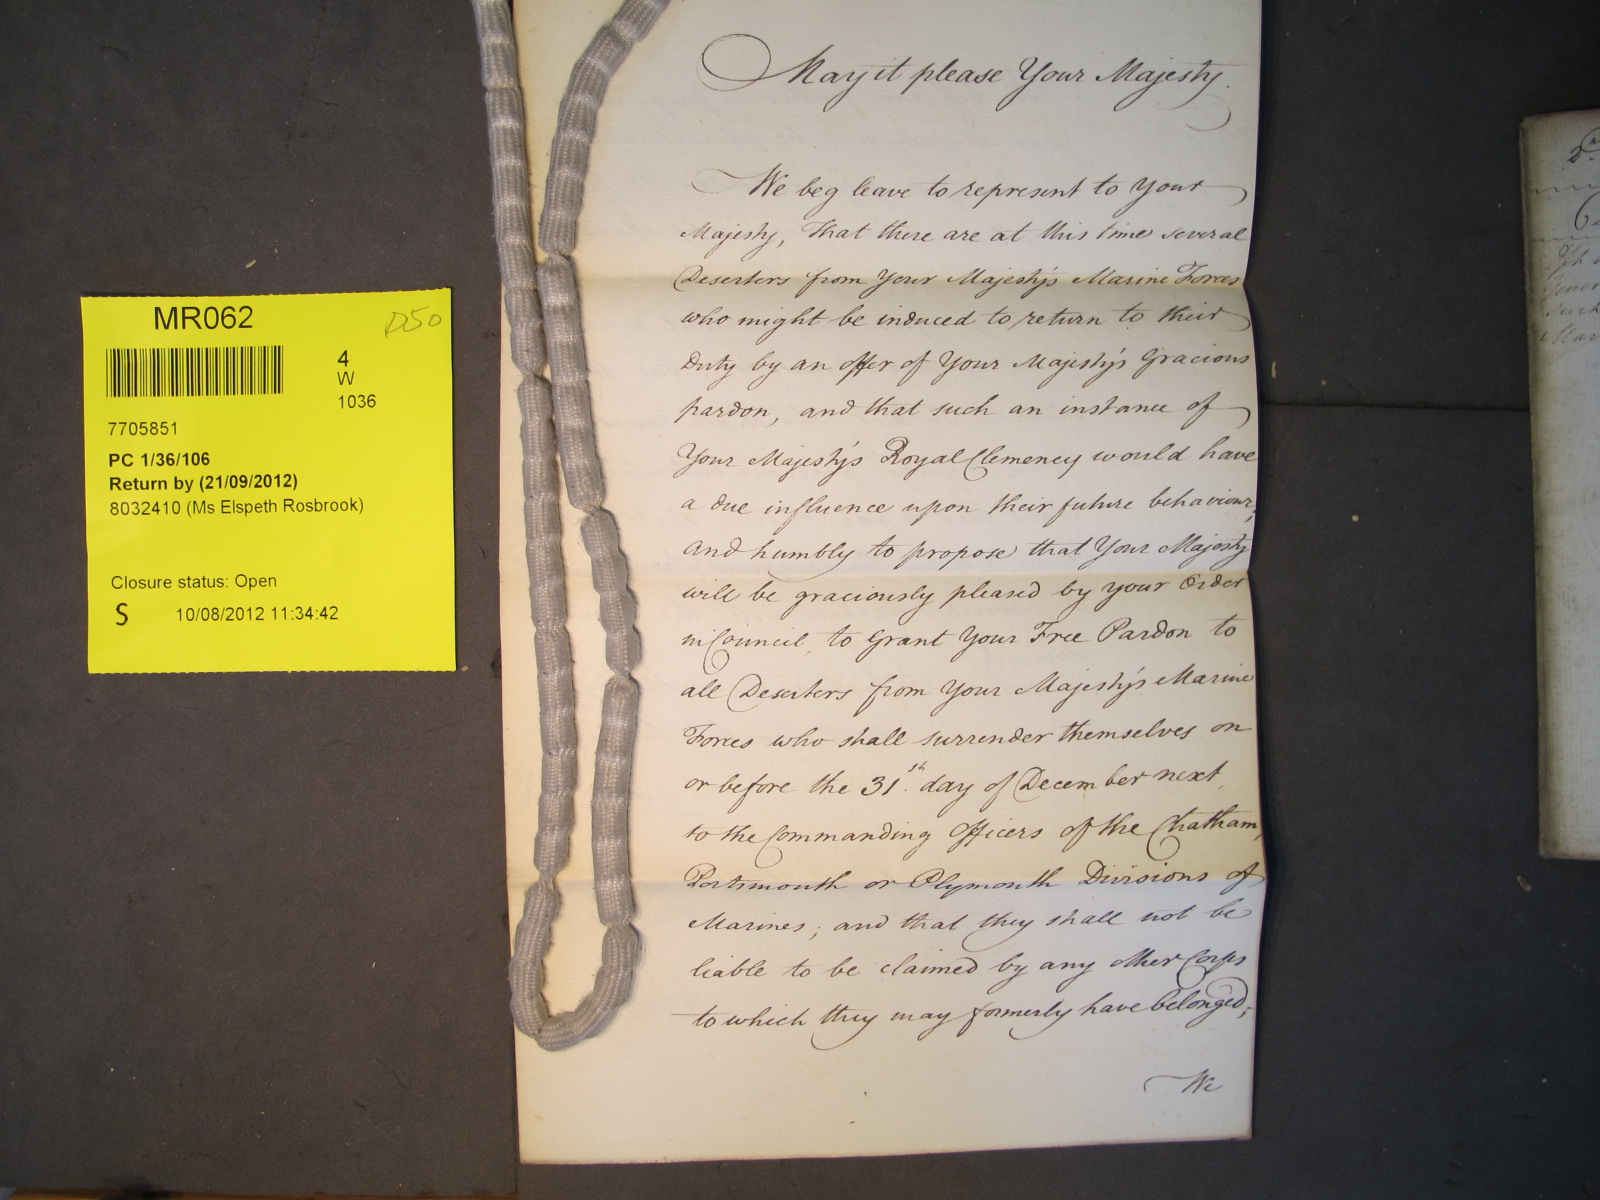 MR062
D50
4
W
1036
7705851
PC 1/36/106
Return by (21/09/2012)
8032410 (Ms Elspeth Rosbrook)
Closure status: Open
S 10/08/2012 11:34:42
May it please Your Majesty.
We beg leave to represent to Your
Majesty, that there are at this time several
Deserters from Your Majesty's Marine Forces
who might be induced to return to their
Duty by an offer of Your Majesty's Gracious
pardon, and that such an instance of
Your Majesty's Royal Clemency would have
a due influence upon their future behaviour;
and humbly to propose that Your Majesty
will be graciously pleased by your Order
in Council, to Grant Your Free Pardon to
all Deserters from Your Majesty's Marine
Forces who shall surrender themselves on
or before the 31st. day of December next
to the Commanding Officers of the Chatham,
Portsmouth or Plymouth Divisions of
Marines; and that they shall not be
liable to be claimed by any other Corps
to which they may formerly have belonged;
We